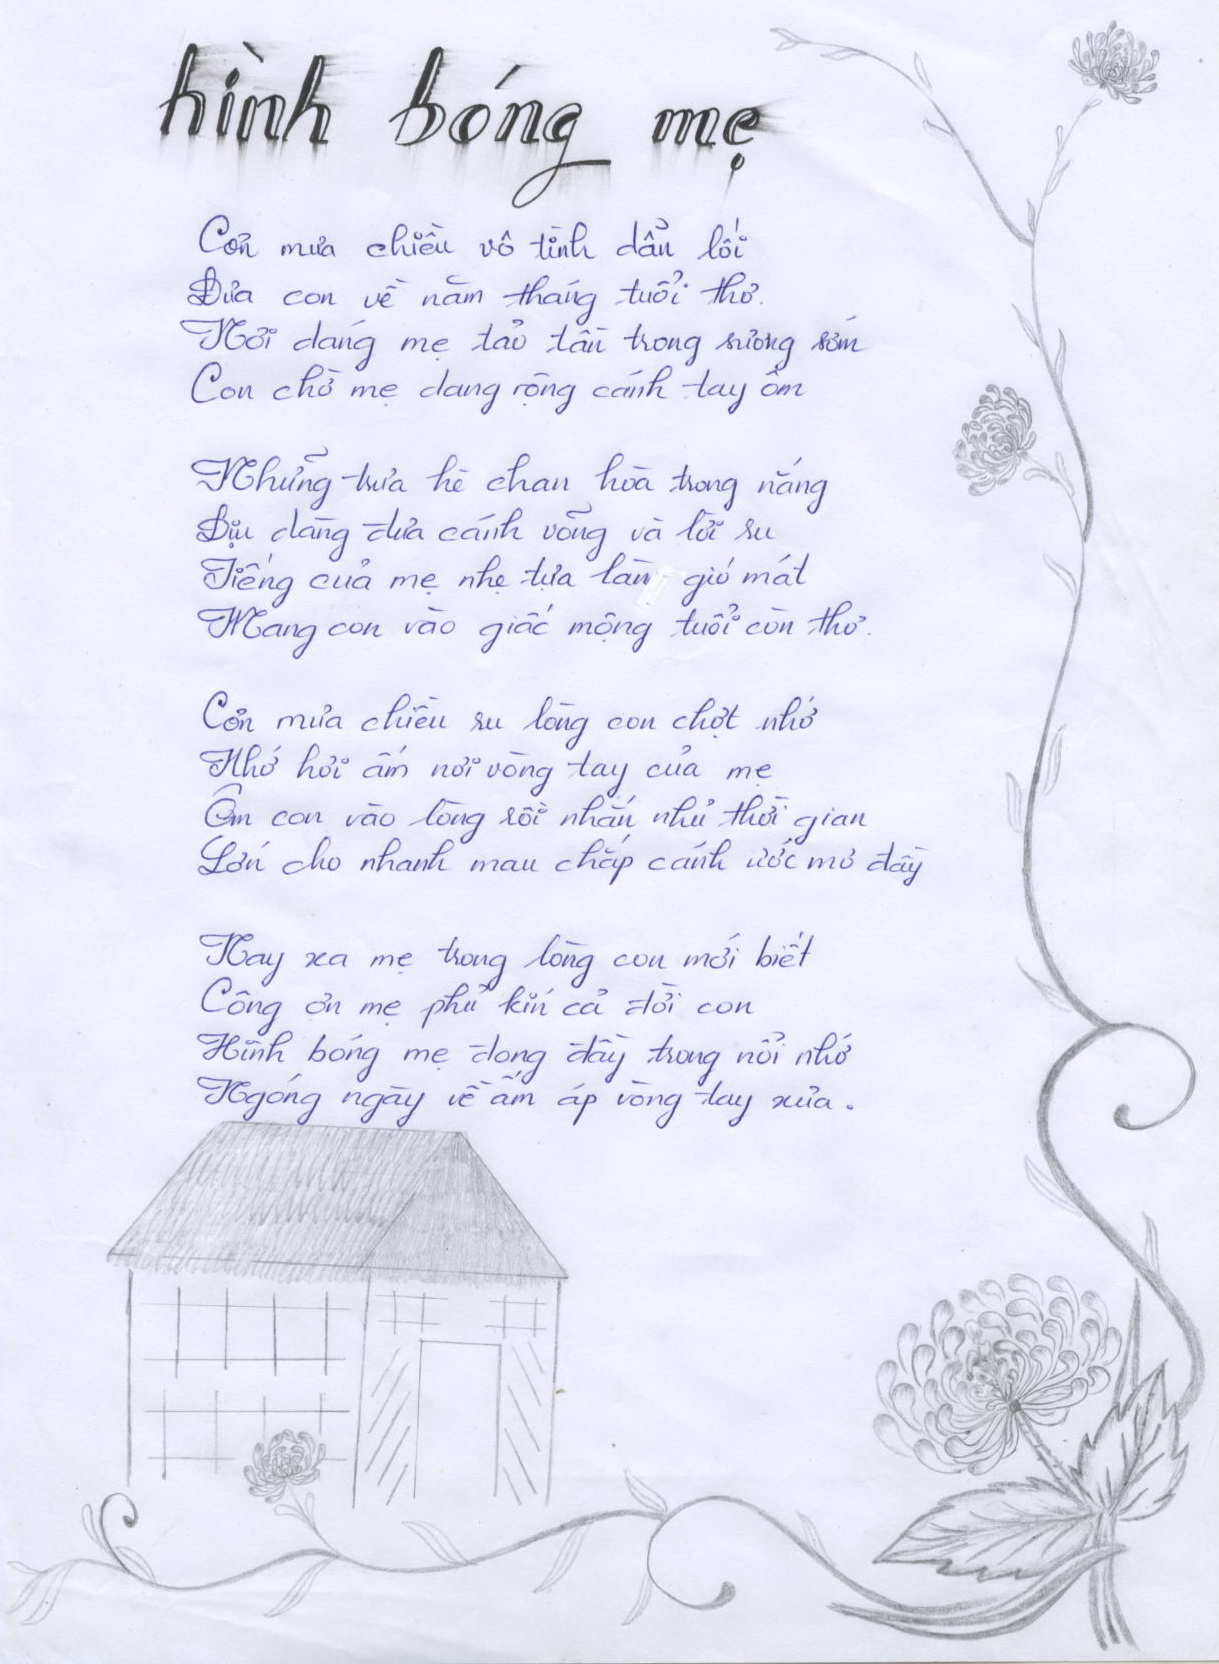 hình bóng mẹ
Cơn mưa chiều vô tình dẫn lối
Đưa con về năm tháng tuổi thơ.
Nơi dáng mẹ tảo tần trong sương sớm
Con chờ mẹ dang rộng cánh tay ôm
Những trưa hè chan hòa trong nắng
Dịu dàng đưa cánh võng và lời ru
Tiếng của mẹ nhẹ tựa làn gió mát
Mang con vào giấc mộng tuổi còn thơ.
Cơn mưa chiều ru lòng con chợt nhớ
Nhớ hơi ấm nơi vòng tay của mẹ
Ôm con vào lòng rồi nhắn nhủ thời gian
Lớn cho nhanh mau chắp cánh ước mơ đầy
Nay xa mẹ trong lòng con mới biết
Công ơn mẹ phủ kín cả đời con
Hình bóng mẹ đong đầy trong nỗi nhớ
Ngóng ngày về ấm áp vòng tay xưa.